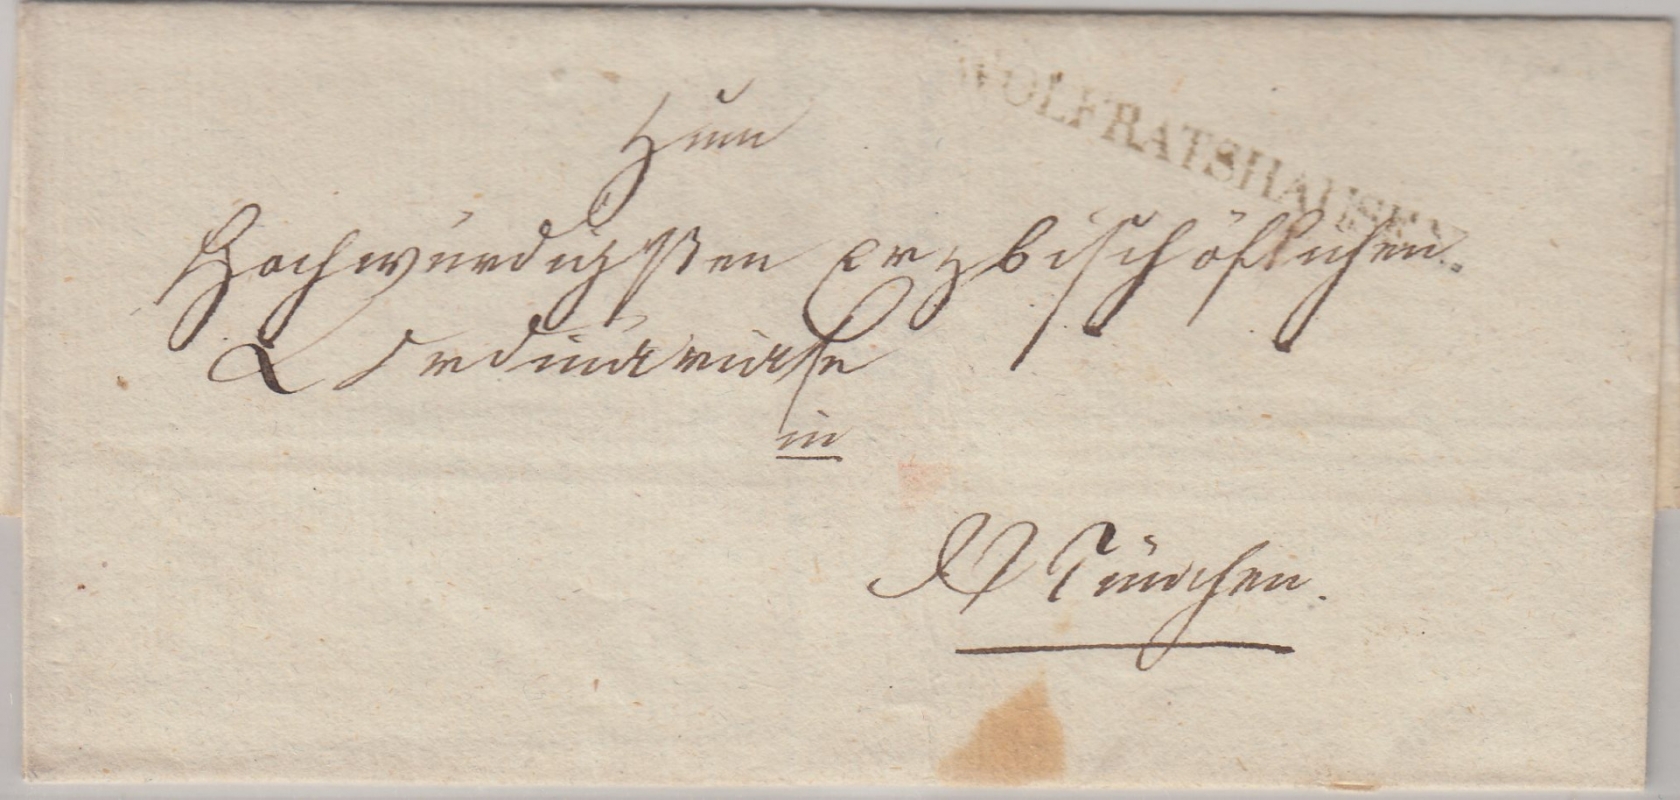 WOLFRATSHAUSEN.
Zum
Hochwürdigsten Erzbischöflichen
Ordinariate
in
München.